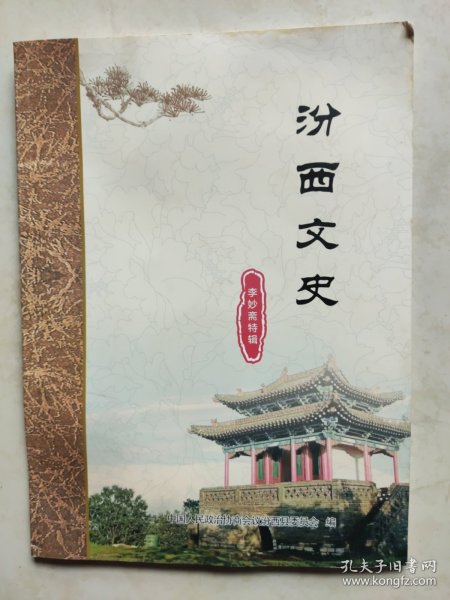 汾西文史
李妙斋特辑
中国人民政治协商会议汾西县委员会 编
孔夫子旧书网
www.kongfz.com